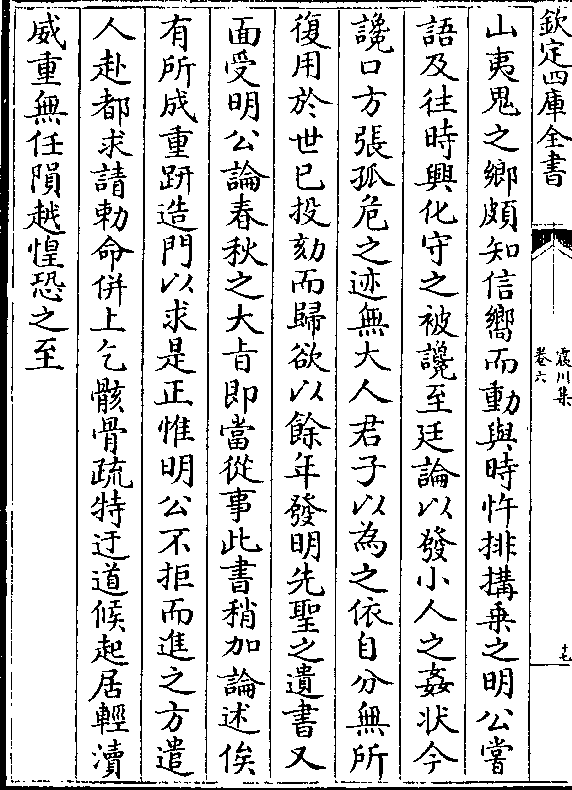 欽定四庫全書
震川集
卷六
七
山夷鬼之鄉頗知信嚮而動與時忤排搆乗之明公嘗
語及往時興化守之被讒至廷論以發小人之姦状今
讒口方張孤危之迹無大人君子以為之依自分無所
復用於世已投劾而歸欲以餘年發明先聖之遺書又
面受明公論春秋之大㫖即當從事此書稍加論述俟
有所成重趼造門以求是正惟明公不拒而進之方遣
人赴都求請勅命併上乞骸骨疏特迂道候起居輕瀆
威重無任隕越惶恐之至